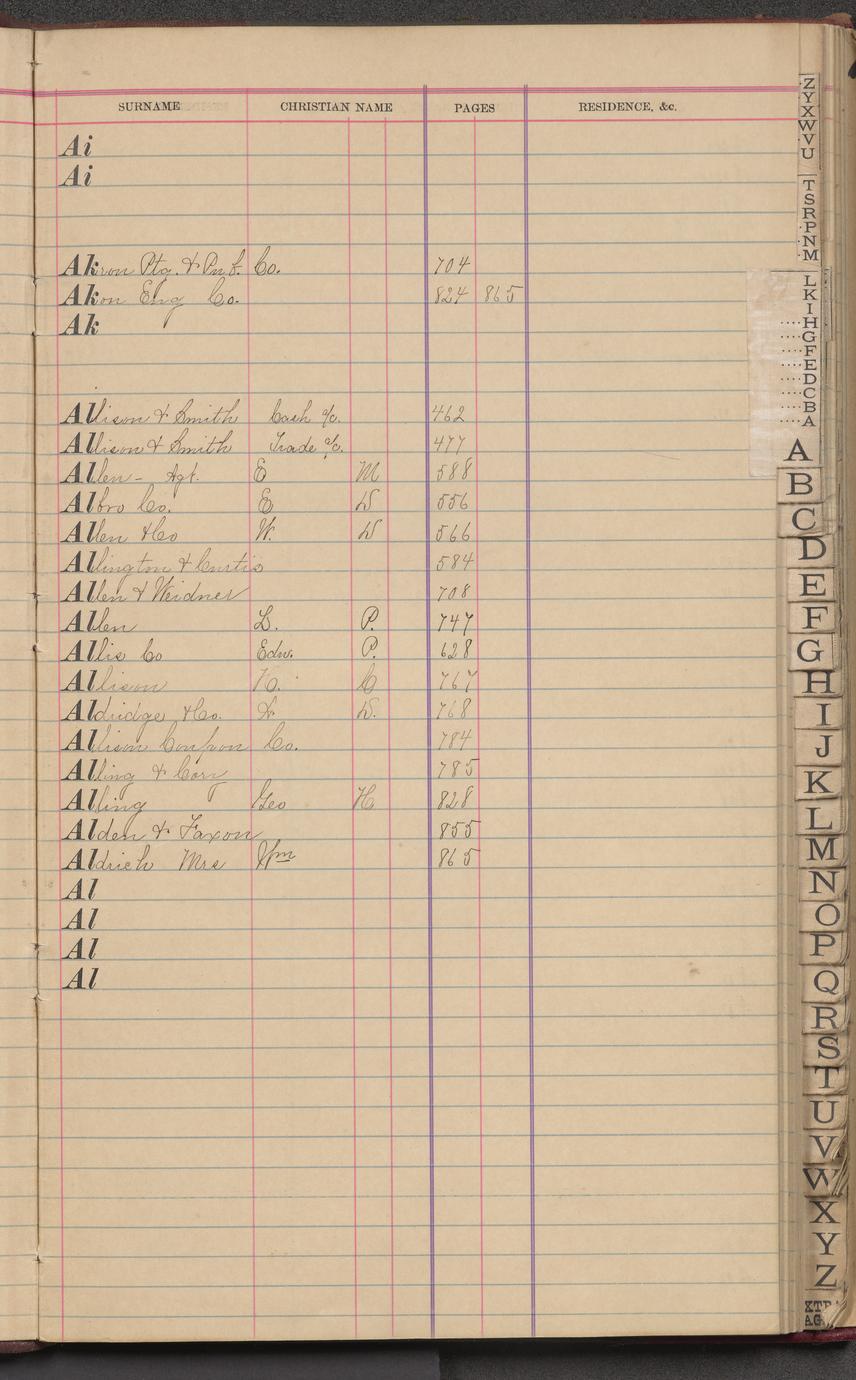 SURNAME CHRISTIAN NAME PAGES RESIDENCE, &c.
Ai
Ai
Akron Ptg. & Pub. Co. 704
Akon Eng Co. 824 865
Ak
Allison & Smith Cash a/c. 462
Allison & Smith Trade a/c. 477
Allen - Agt. E M 588
Albro Co. E D 556
Allen & Co W. D 566
Allington & Curtis 584
Allen & Weidner 708
Allen L. P. 747
Allis Co Edw. P. 628
Allison H. C 767
Aldridge & Co. D. 768
Allison Coupon Co. 784
Alling & Cory 785
Alling Geo H 828
Alden & Faxon 855
Aldrich Mrs Wm 865
Al
Al
Al
Al
Z
Y
X
W
V
U
T
S
R
P
N
M
L
K
I
H
G
F
E
D
C
B
A
A
B
C
D
E
F
G
H
I
J
K
L
M
N
O
P
Q
R
S
T
U
V
W
X
Y
Z